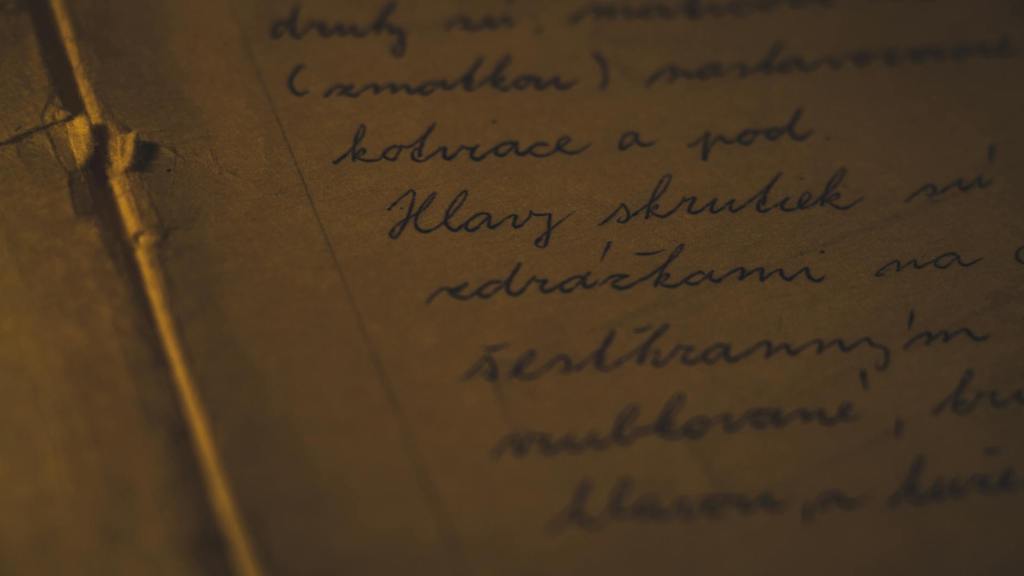 druhy sú:
(zmatkou) nastavovacie
kotviace a pod.
Hlavy skrutiek sú
zdrážkami na
šesťhranným
vrubkované,
hlavou, s